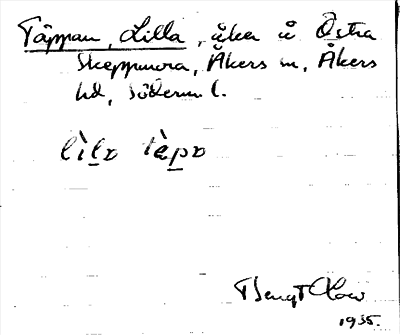 Täppan, Lilla, åker å Östra
Skeppmora, Åkers sn, Åkers
hd, Söderm l.
lìlɒ tàpɒ
Bengt Olow
1935.